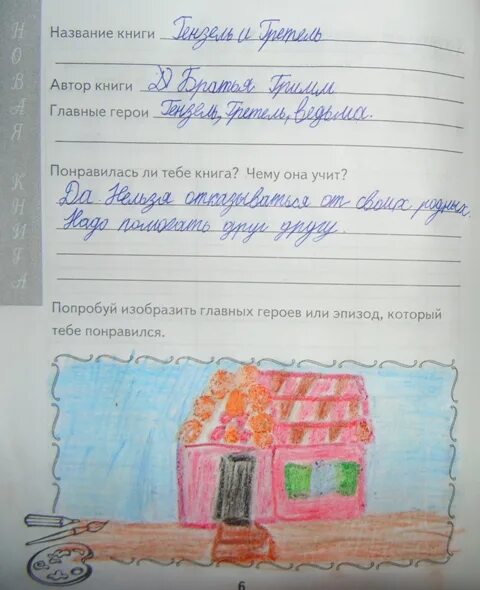 НОВАЯ КНИГА
Название книги Гензель и Гретель
Автор книги Братья Гримм
Главные герои Гензель, Гретель, ведьма.
Понравилась ли тебе книга? Чему она учит?
Да Нельзя отказываться от своих родных.
Надо помогать друг другу.
Попробуй изобразить главных героев или эпизод, который
тебе понравился.
6